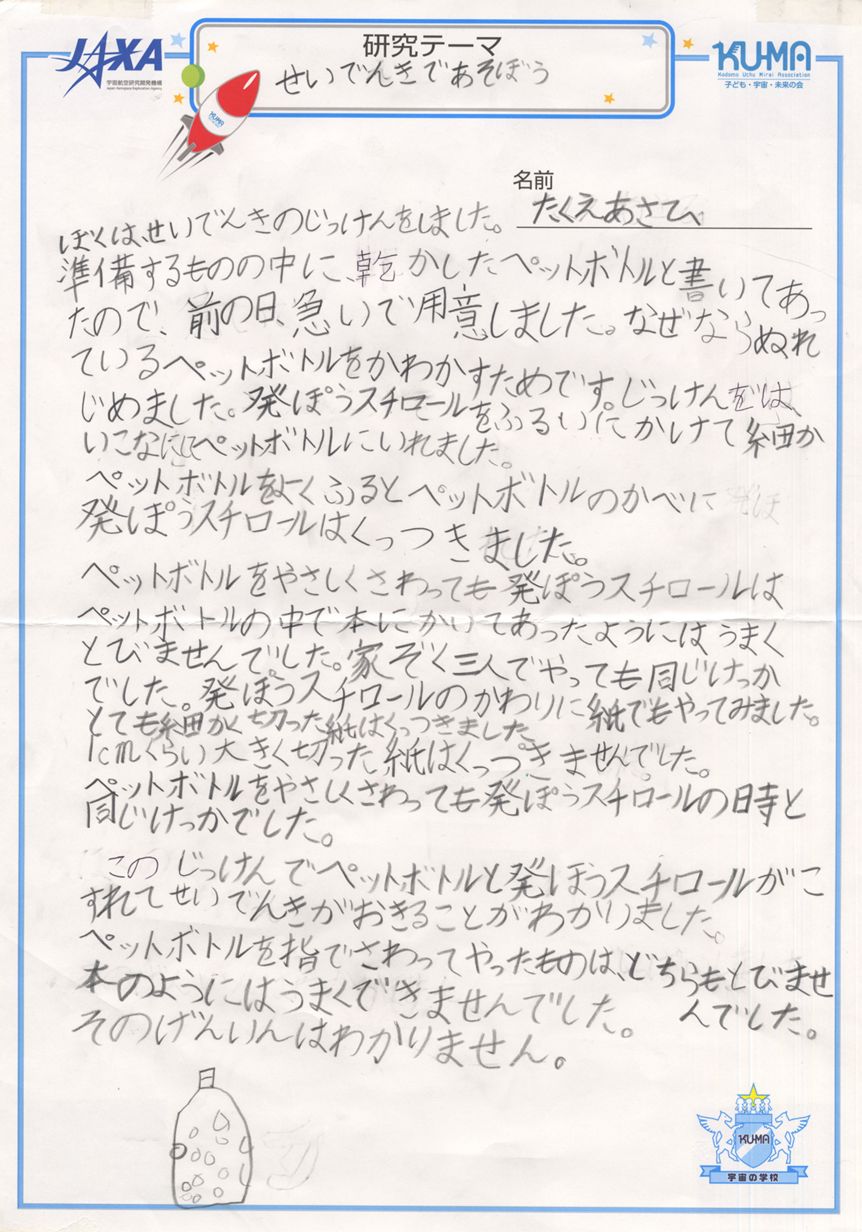 JAXA
宇宙航空研究開発機構
Japan Aerospace Exploration Agency
研究テーマ
せいでんきであそぼう
KUMA
Kodomo Uchu Mirai Association
子ども・宇宙・未来の会
KUMA
名前
たくえあさひ
ぼくは、せいでんきのじっけんをしました。
準備するものの中に、乾かしたペットボトルと書いてあっ
たので、前の日、急いで用意しました。なぜならぬれ
ているペットボトルをかわかすためです。じっけんをは、
じめました。発ぽうスチロールをふるいにかけて細か
いこなにしペットボトルにいれました。
ペットボトルをよくふるとペットボトルのかべに
発ぽうスチロールはくっつきました。
ペットボトルをやさしくさわっても発ぽうスチロールは
ペットボトルの中で本にかいてあったようにはうまく
とびませんでした。家ぞく三人でやっても同じけっか
でした。発ぽうスチロールのかわりに紙でもやってみました。
とても細かく切った紙はくっつきました。
1cmくらい大きく切った紙はくっつきませんでした。
ペットボトルをやさしくさわっても発ぽうスチロールの日寺と
同じけっかでした。
このじっけんでペットボトルと発ぽうスチロールがこ
すれてせいでんきがおきることがわかりました。
ペットボトルを指でさわってやったものは、どちらもとびませ
んでした。
本のようにはうまくできませんでした。
そのげんいんはわかりません。
KUMA
宇宙の学校